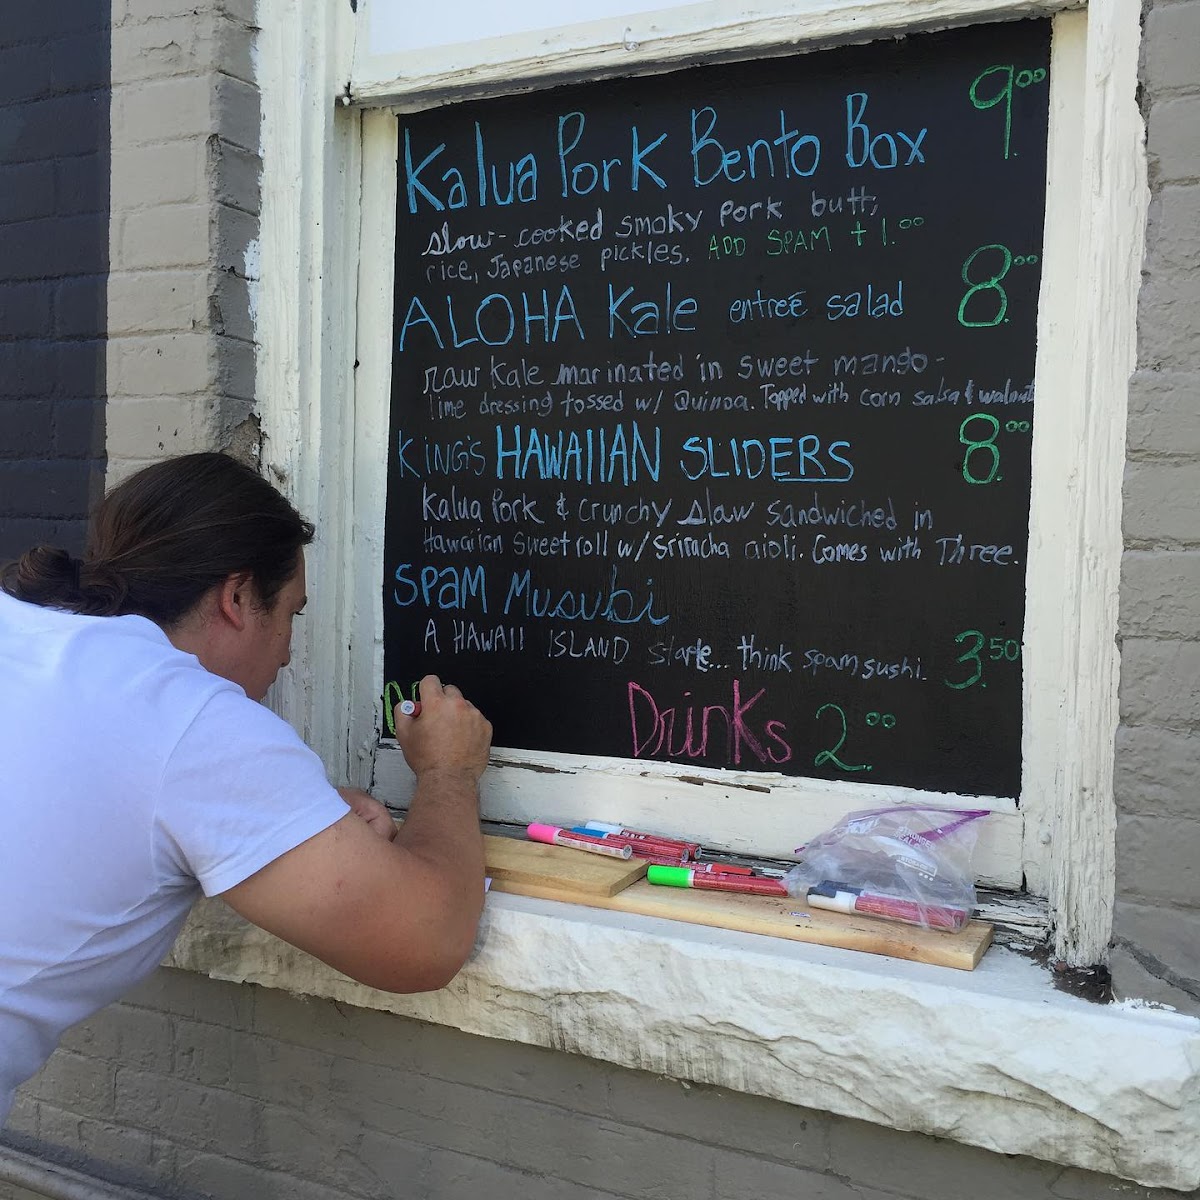 Kalua Pork Bento Box 9.00
slow-cooked smoky pork butt,
rice, Japanese pickles. ADD SPAM +1.00
ALOHA Kale entreé salad 8.00
raw kale marinated in sweet mango-
lime dressing tossed w/ Quinoa. Topped with corn salsa & walnuts
KiNG'S HAWAIIAN SLIDERS 8.00
Kalua Pork & Crunchy slaw sandwiched in
Hawaiian Sweet roll w/ Sriracha aioli. Comes with Three.
SPAM Musubi
A HAWAII ISLAND staple... think spam sushi. 3.50
Drinks 2.00